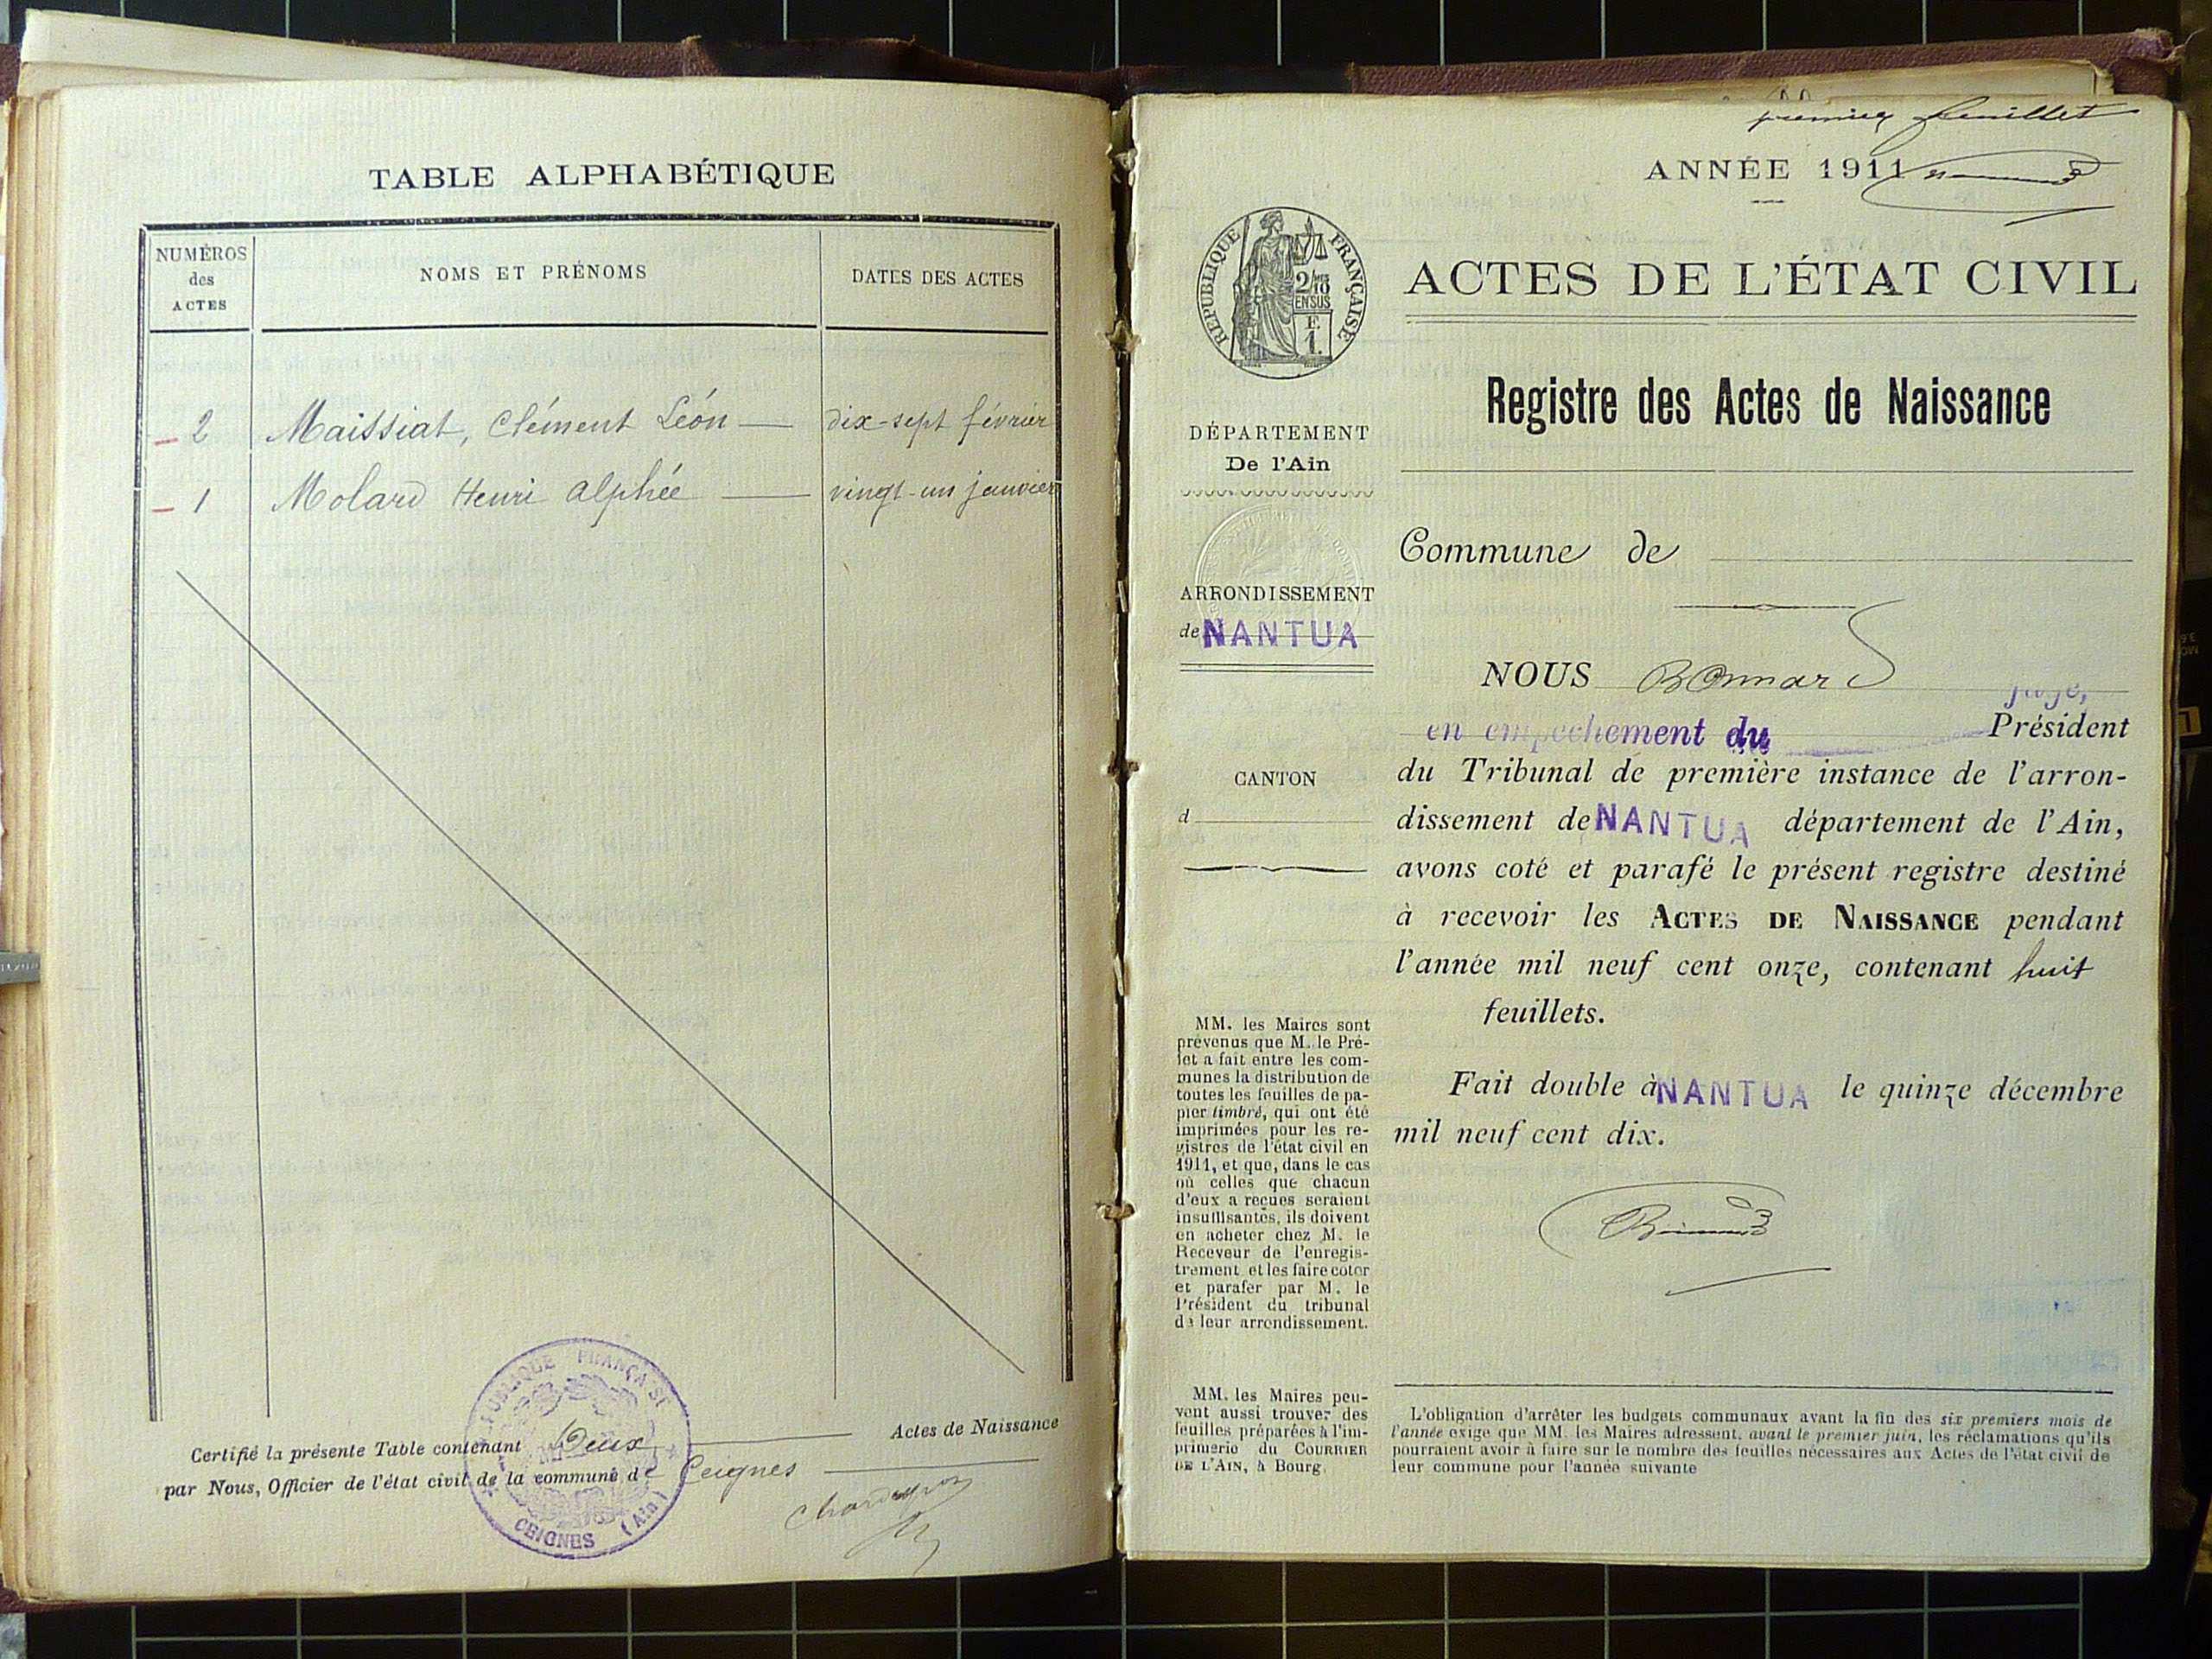 TABLE ALPHABÉTIQUE
NUMÉROS
des
ACTES
NOMS ET PRÉNOMS
DATES DES ACTES
2 Maissiat, Clément Léon — dix-sept février
1 Molard Henri Alphée — vingt-un janvier
Certifié la présente Table contenant Deux Actes de Naissance
par Nous, Officier de l'état civil de la commune de Ceignes
RÉPUBLIQUE FRANÇAISE
CEIGNES (Ain)
premier feuillet
ANNÉE 1911
RÉPUBLIQUE FRANÇAISE
2/10
EN SUS
F.
1.
ACTES DE L'ÉTAT CIVIL
Registre des Actes de Naissance
DÉPARTEMENT
De l'Ain
ARRONDISSEMENT
de NANTUA
CANTON
d
MM. les Maires sont
prévenus que M. le Pré-
fet a fait entre les com-
munes la distribution de
toutes les feuilles de pa-
pier timbré, qui ont été
imprimées pour les re-
gistres de l'état civil en
1911, et que, dans le cas
où celles que chacun
d'eux a reçues seraient
insuffisantes, ils doivent
en acheter chez M. le
Receveur de l'enregis-
trement et les faire coter
et parafer par M. le
Président du tribunal
de leur arrondissement.
MM. les Maires peu-
vent aussi trouver des
feuilles préparées à l'im-
primerie du COURRIER
DE L'AIN, à Bourg.
Commune de
NOUS Bonnard
juge,
en empechement du Président
du Tribunal de première instance de l'arron-
dissement de NANTUA département de l'Ain,
avons coté et parafé le présent registre destiné
à recevoir les ACTES DE NAISSANCE pendant
l'année mil neuf cent onze, contenant huit
feuillets.
Fait double à NANTUA le quinze décembre
mil neuf cent dix.
L'obligation d'arrêter les budgets communaux avant la fin des six premiers mois de
l'année exige que MM. les Maires adressent, avant le premier juin, les réclamations qu'ils
pourraient avoir à faire sur le nombre des feuilles nécessaires aux Actes de l'état civil de
leur commune pour l'année suivante